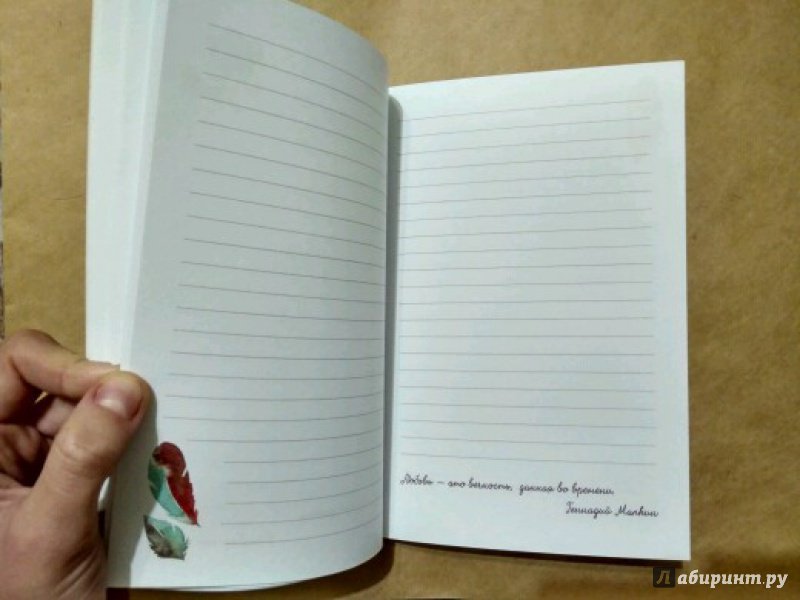 Любовь — это вечность, данная во времени.
Геннадий Малкин
Лабиринт.ру